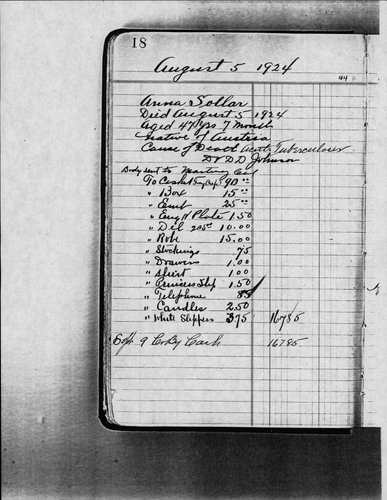 18
August 5 1924
44
Anna Sollar
Died August 5 1924
Aged 47 yrs 7 Month
Native of Austria
Cause of Death Acute Tuberculosis
Dr D D Johnson
Body sent to Cal
To Casket 90 00
" Box 15 00
" Emb 25 00
" Eng N Plate 1.50
" Del 10.00
" Robe 15.00
" Stockings 75
" Drawers 1.00
" Shirt 1 00
" Princess Slip 1.50
" Telephone 85
" Candles 2.50
" White Slippers 3 75 167 85
Sept 9 Cr By Cash 167 85